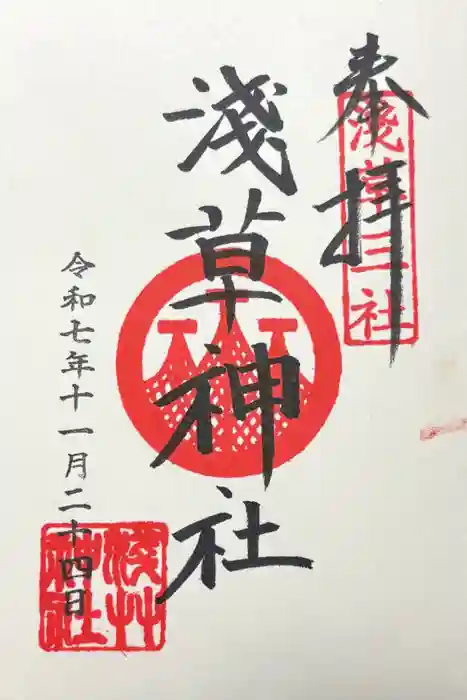 奉拝
淺草三社
淺草神社
令和七年十一月二十四日
淺艸神社